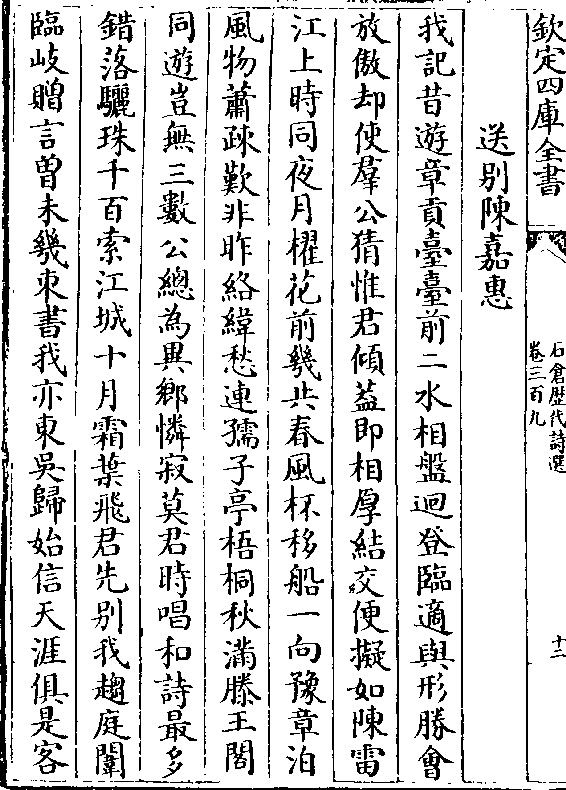 欽定四庫全書
石倉歴代詩選
卷三百九
十二
送别陳嘉惠
我記昔遊章貢臺臺前二水相盤迴登臨適與形勝會
放傲却使羣公猜惟君傾葢即相厚結交便擬如陳雷
江上時同夜月櫂花前幾共春風杯移船一向豫章泊
風物蕭疎歎非昨絡緯愁連孺子亭梧桐秋滿滕王閣
同遊豈無三數公總為異鄉憐寂莫君時唱和詩最多
錯落驪珠千百索江城十月霜葉飛君先别我趨庭闈
臨岐贈言曽未幾束書我亦東吳歸始信天涯俱是客